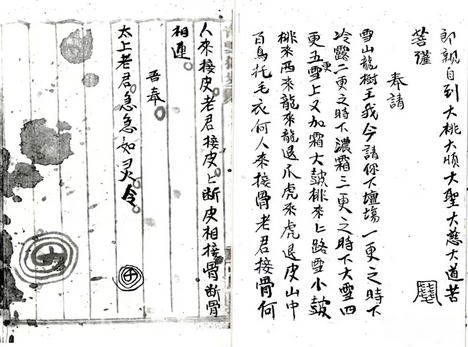 親自到大桃大順大聖大慈大道苦
菩薩
奉請
雪山龍樹王我今請你下壇場一更之時下
冷露二更之時下濃霜三更之時下大雪四
更五更雪上又加霜大鼓桃來上路雪小鼓
桃來西來龍來龍退爪虎來虎退皮山中
百鳥托毛衣何人來接骨老君接骨何
人來接皮老君接皮〻断皮相接骨断骨
相連。
吾奉
太上老君急急如灵令